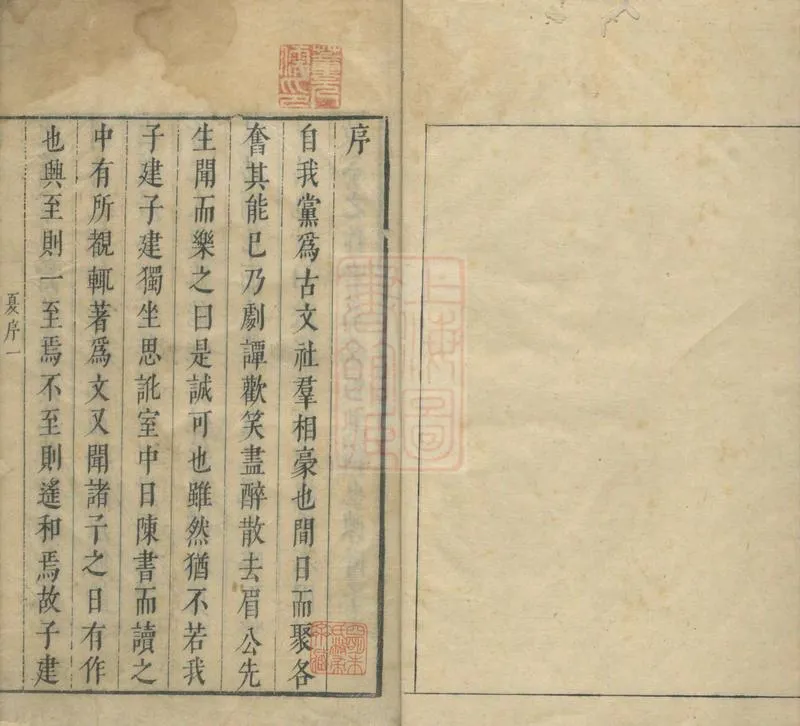 序
自我黨爲古文社羣相豪也間日而聚各
奮其能已乃劇譚歡笑盡醉散去眉公先
生聞而樂之曰是誠可也雖然猶不若我
子建子建獨坐思訛室中日陳書而讀之
中有所覩輒著爲文又聞諸子之日有作
也興至則一至焉不至則遙和焉故子建
夏序一